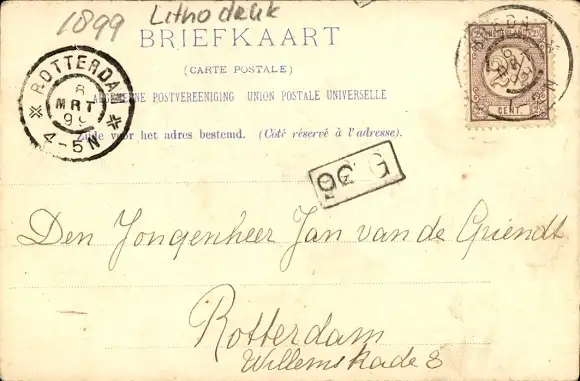 1899 Lithodruk
BRIEFKAART
(CARTE POSTALE)
ALGEMEENE POSTVEREENIGING UNION POSTALE UNIVERSELLE
Zijde voor het adres bestemd. (Côté réservé à l'adresse).
ROTTERDAM
8
MRT
99
4-5N
BREDA
CENT.
G 36
Den Jongenheer Jan van de Griendt
Rotterdam
Willemskade 8